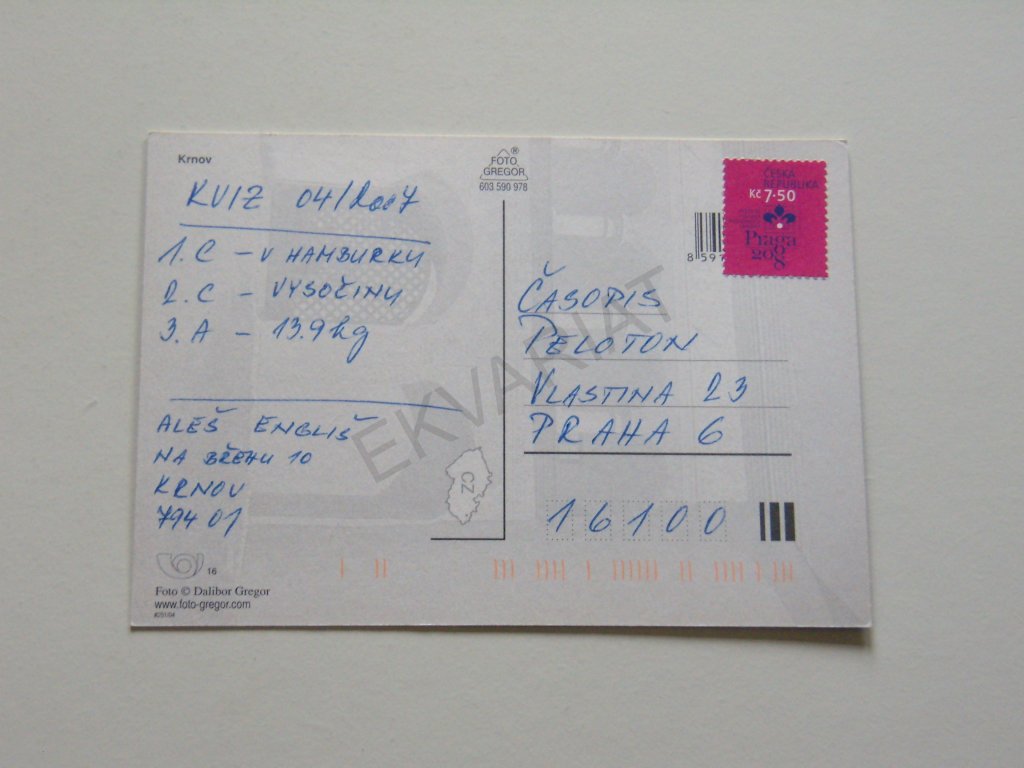 Krnov
FOTO ®
GREGOR
603 590 978
KVIZ 04/2007
1. C – V HAMBURKU
2. C – VYSOČINU
3. A – 13.9 kg
ALEŠ ENGLIŠ
NA BŘEHU 10
KRNOV
794 01
16
Foto © Dalibor Gregor
www.foto-gregor.com
ČESKÁ
REPUBLIKA
Kč 7·50
Praga
2008
8 597
ČASOPIS
PELOTON
VLASTINA 23
PRAHA 6
CZ
16100
EKVARIAT